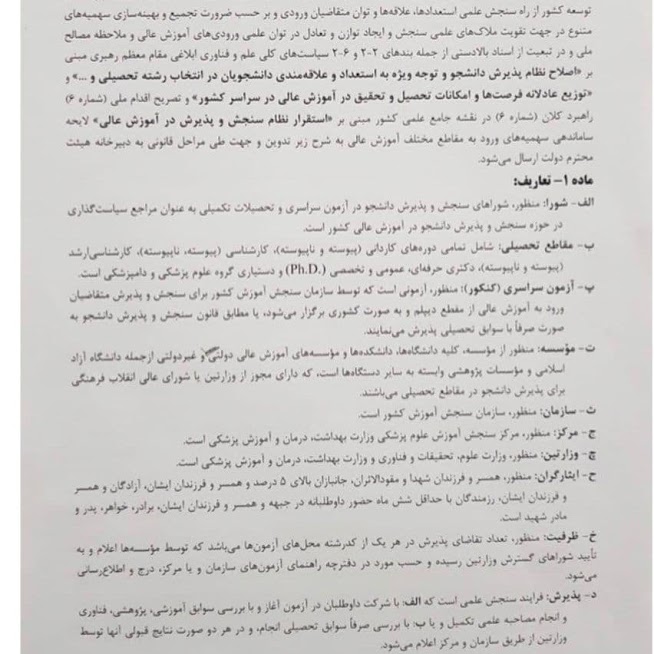 توسعه کشور از راه سنجش علمی استعدادها، علاقه‌ها و توان متقاضیان ورودی و بر حسب ضرورت تجمیع و بهینه‌سازی سهمیه‌های
متنوع در جهت تقویت ملاک‌های علمی سنجش و ایجاد توازن و تعادل در توان علمی ورودی‌های آموزش عالی و ملاحظه مصالح
ملی و در تبعیت از اسناد بالادستی از جمله بندهای ۲-۲ و ۶-۲ سیاست‌های کلی علم و فناوری ابلاغی مقام معظم رهبری مبنی
بر «اصلاح نظام پذیرش دانشجو و توجه ویژه به استعداد و علاقه‌مندی دانشجویان در انتخاب رشته تحصیلی و ...» و
«توزیع عادلانه فرصت‌ها و امکانات تحصیل و تحقیق در آموزش عالی در سراسر کشور» و تصریح اقدام ملی (شماره ۶)
راهبرد کلان (شماره ۶) در نقشه جامع علمی کشور مبنی بر «استقرار نظام سنجش و پذیرش در آموزش عالی» لایحه
ساماندهی سهمیه‌های ورود به مقاطع مختلف آموزش عالی به شرح زیر تدوین و جهت طی مراحل قانونی به دبیرخانه هیئت
محترم دولت ارسال می‌شود.
ماده ۱- تعاریف:
الف- شورا: منظور، شوراهای سنجش و پذیرش دانشجو در آزمون سراسری و تحصیلات تکمیلی به عنوان مراجع سیاست‌گذاری
در حوزه سنجش و پذیرش دانشجو در آموزش عالی کشور است.
ب- مقاطع تحصیلی: شامل تمامی دوره‌های کاردانی (پیوسته و ناپیوسته)، کارشناسی (پیوسته، ناپیوسته)، کارشناسی‌ارشد
(پیوسته و ناپیوسته)، دکتری حرفه‌ای، عمومی و تخصصی (Ph.D.) و دستیاری گروه علوم پزشکی و دامپزشکی است.
پ- آزمون سراسری (کنکور): منظور، آزمونی است که توسط سازمان سنجش آموزش کشور برای سنجش و پذیرش متقاضیان
ورود به آموزش عالی از مقطع دیپلم و به صورت کشوری برگزار می‌شود، یا مطابق قانون سنجش و پذیرش دانشجو به
صورت صرفاً با سوابق تحصیلی پذیرش می‌نمایند.
ت- مؤسسه: منظور از مؤسسه، کلیه دانشگاه‌ها، دانشکده‌ها و مؤسسه‌های آموزش عالی دولتی و غیردولتی ازجمله دانشگاه آزاد
اسلامی و مؤسسات پژوهشی وابسته به سایر دستگاه‌ها است، که دارای مجوز از وزارتین یا شورای عالی انقلاب فرهنگی
برای پذیرش دانشجو در مقاطع تحصیلی می‌باشند.
ث- سازمان: منظور، سازمان سنجش آموزش کشور است.
ج- مرکز: منظور، مرکز سنجش آموزش علوم پزشکی وزارت بهداشت، درمان و آموزش پزشکی است.
چ- وزارتین: منظور، وزارت علوم، تحقیقات و فناوری و وزارت بهداشت، درمان و آموزش پزشکی است.
ح- ایثارگران: منظور، همسر و فرزندان شهدا و مفقودالاثران، جانبازان بالای ۵ درصد و همسر و فرزندان ایشان، آزادگان و همسر
و فرزندان ایشان، رزمندگان با حداقل شش ماه حضور داوطلبانه در جبهه و همسر و فرزندان ایشان، برادر، خواهر، پدر و
مادر شهید است.
خ- ظرفیت: منظور، تعداد تقاضای پذیرش در هر یک از کدرشته محل‌های آزمون‌ها می‌باشد که توسط مؤسسه‌ها اعلام و به
تأیید شوراهای گسترش وزارتین رسیده و حسب مورد در دفترچه راهنمای آزمون‌های سازمان و یا مرکز، درج و اطلاع‌رسانی
می‌شود.
د- پذیرش: فرایند سنجش علمی است که الف: با شرکت داوطلبان در آزمون آغاز و با بررسی سوابق آموزشی، پژوهشی، فناوری
و انجام مصاحبه علمی تکمیل و یا ب: با بررسی صرفاً سوابق تحصیلی انجام، و در هر دو صورت نتایج قبولی آنها توسط
وزارتین از طریق سازمان و مرکز اعلام می‌شود.